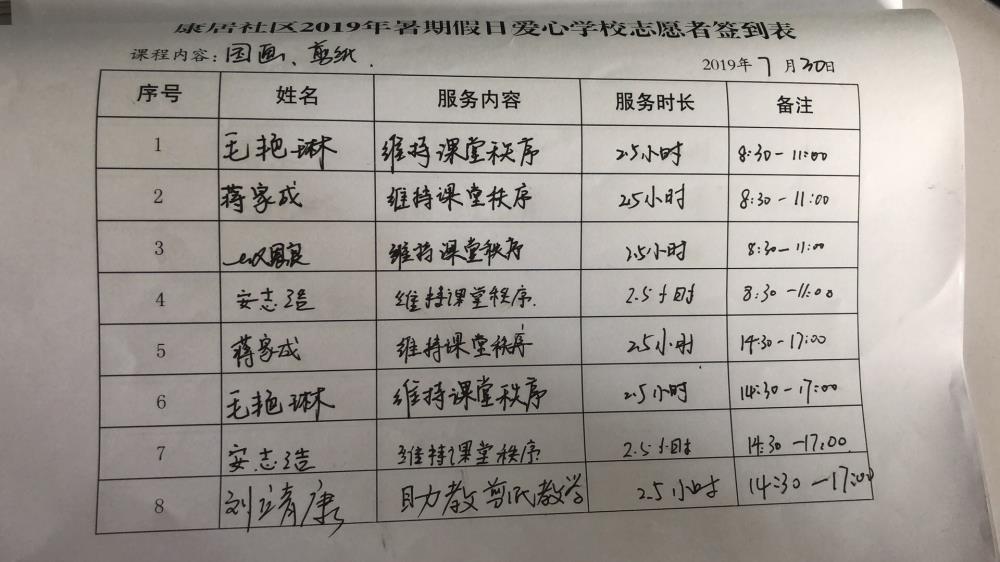 康居社区2019年暑期假日爱心学校志愿者签到表
课程内容：国画、剪纸.
2019年7月30日
序号 姓名 服务内容 服务时长 备注
1 毛艳琳 维持课堂秩序 2.5小时 8:30-11:00
2 蒋家成 维持课堂秩序 2.5小时 8:30-11:00
3 维持课堂秩序 2.5小时 8:30-11:00
4 安志浩 维持课堂秩序. 2.5小时 8:30-11:00
5 蒋家成 维持课堂秩序 2.5小时 14:30-17:00
6 毛艳琳 维持课堂秩序 2.5小时 14:30-17:00
7 安志浩 维持课堂秩序 2.5小时 14:30-17:00
8 刘靖康 助力教剪纸教学 2.5小时 14:30-17:00